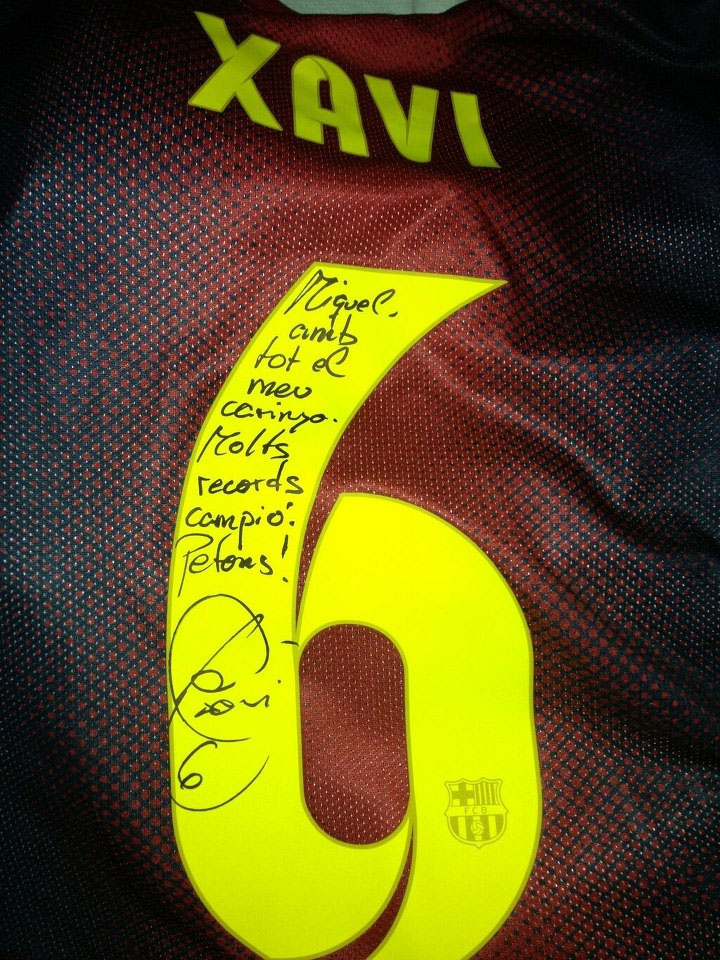 XAVI
Miquel,
amb
tot el
meu
carinyo.
Molts
records
campió!
Petons!
Xavi
6
6
FCB